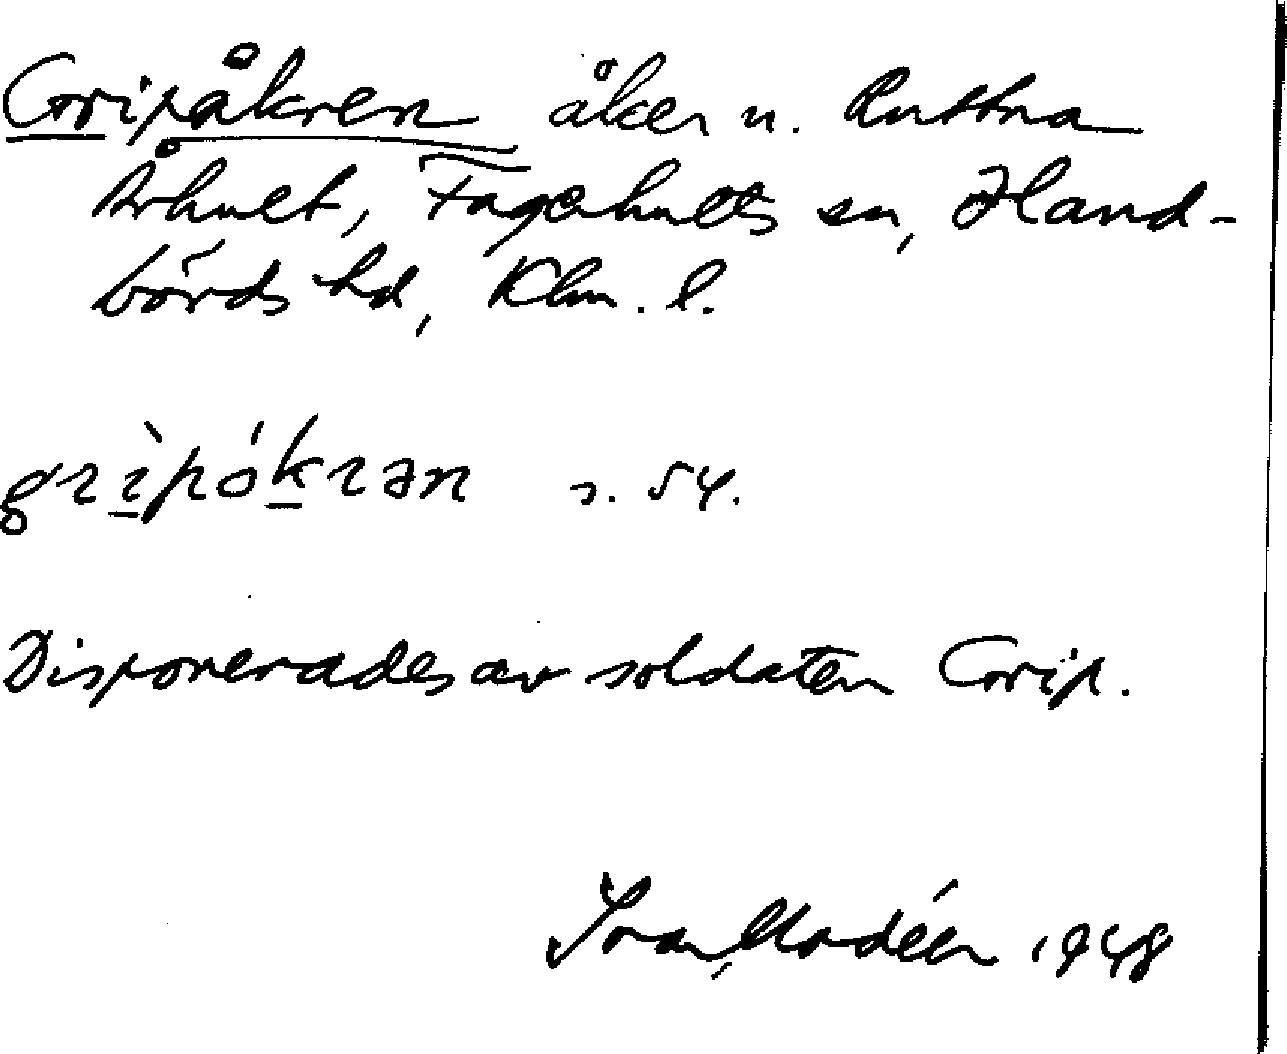 Gripåkren åker u. Ruttna
Århult, Fagerhults sn, Hand-
börds hd, Klm. l.
grìpókrən s. 54.
Disponerades av soldaten Grip.
Ivar Modéer 1948